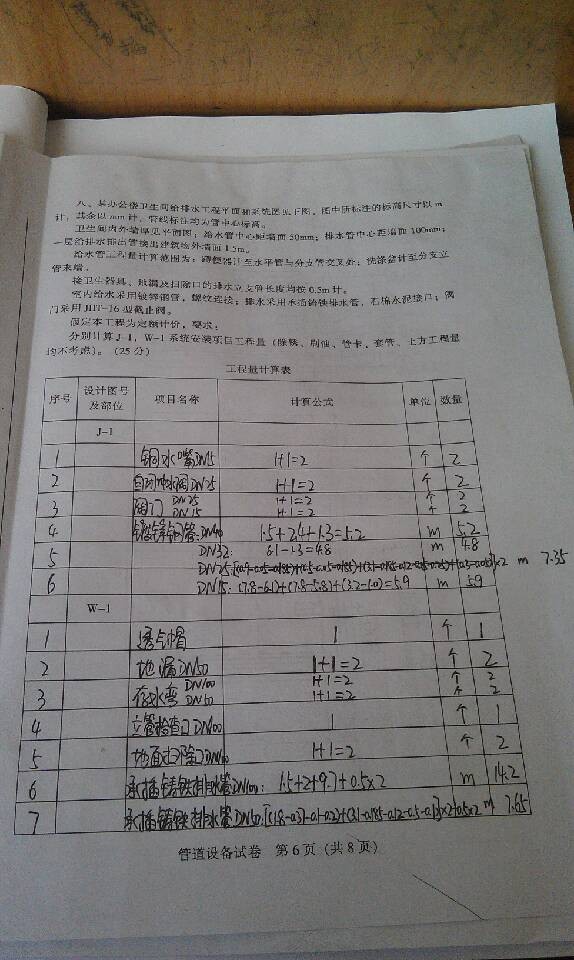 八、某办公楼卫生间给排水工程平面和系统图见下图，图中所标注的标高尺寸以 m
计，其余以 mm 计，管线标注均为管中心标高。
卫生间内外墙厚见平面图；给水管中心距墙面 50mm；排水管中心距墙面 100mm；
一层给排水都出管接出建筑物外墙面 1.5m。
给水管工程量计算范围为：蹲便器计至水平管与分支管交叉处；洗涤盆计至分支立
管末端。
接卫生器具、地漏及扫除口的排水立支管长度均按 0.5m 计。
室内给水采用镀锌钢管，螺纹连接；排水采用承插铸铁排水管，石棉水泥接口；阀
门采用 J11T-16 型截止阀。
假定本工程为定额计价，要求：
分别计算 J-1、W-1 系统安装项目工程量（除锈、刷油、管卡、套管、土方工程量
均不考虑）。（25 分）
工程量计算表
序号 设计图号及部位 项目名称 计算公式 单位 数量
J-1
1 铜水嘴DN15 1+1=2 个 2
2 自闭冲水阀DN25 1+1=2 个 2
3 阀门 DN25 1+1=2 个 2
DN15 1+1=2 个 2
4 镀锌钢管:DN40 1.5+2.4+1.3=5.2 m 5.2
5 DN32: 6.1-1.3=4.8 m 4.8
DN25: m 7.35
6 DN15: (7.8-6.1)+(7.8-5.8)+(3.2-1.0)=5.9 m 5.9
W-1
1 透气帽 1 个 1
2 地漏DN50 1+1=2 个 2
3 存水弯 DN100 1+1=2 个 2
DN50 1+1=2 个 2
4 立管检查口DN100 1 个 1
5 地面扫除口DN100 1+1=2 个 2
6 承插铸铁排水管DN100: 1.5+2+9.7+0.5×2 m 14.2
7 承插铸铁排水管DN50: m 7.65
管道设备试卷 第 6 页（共 8 页）